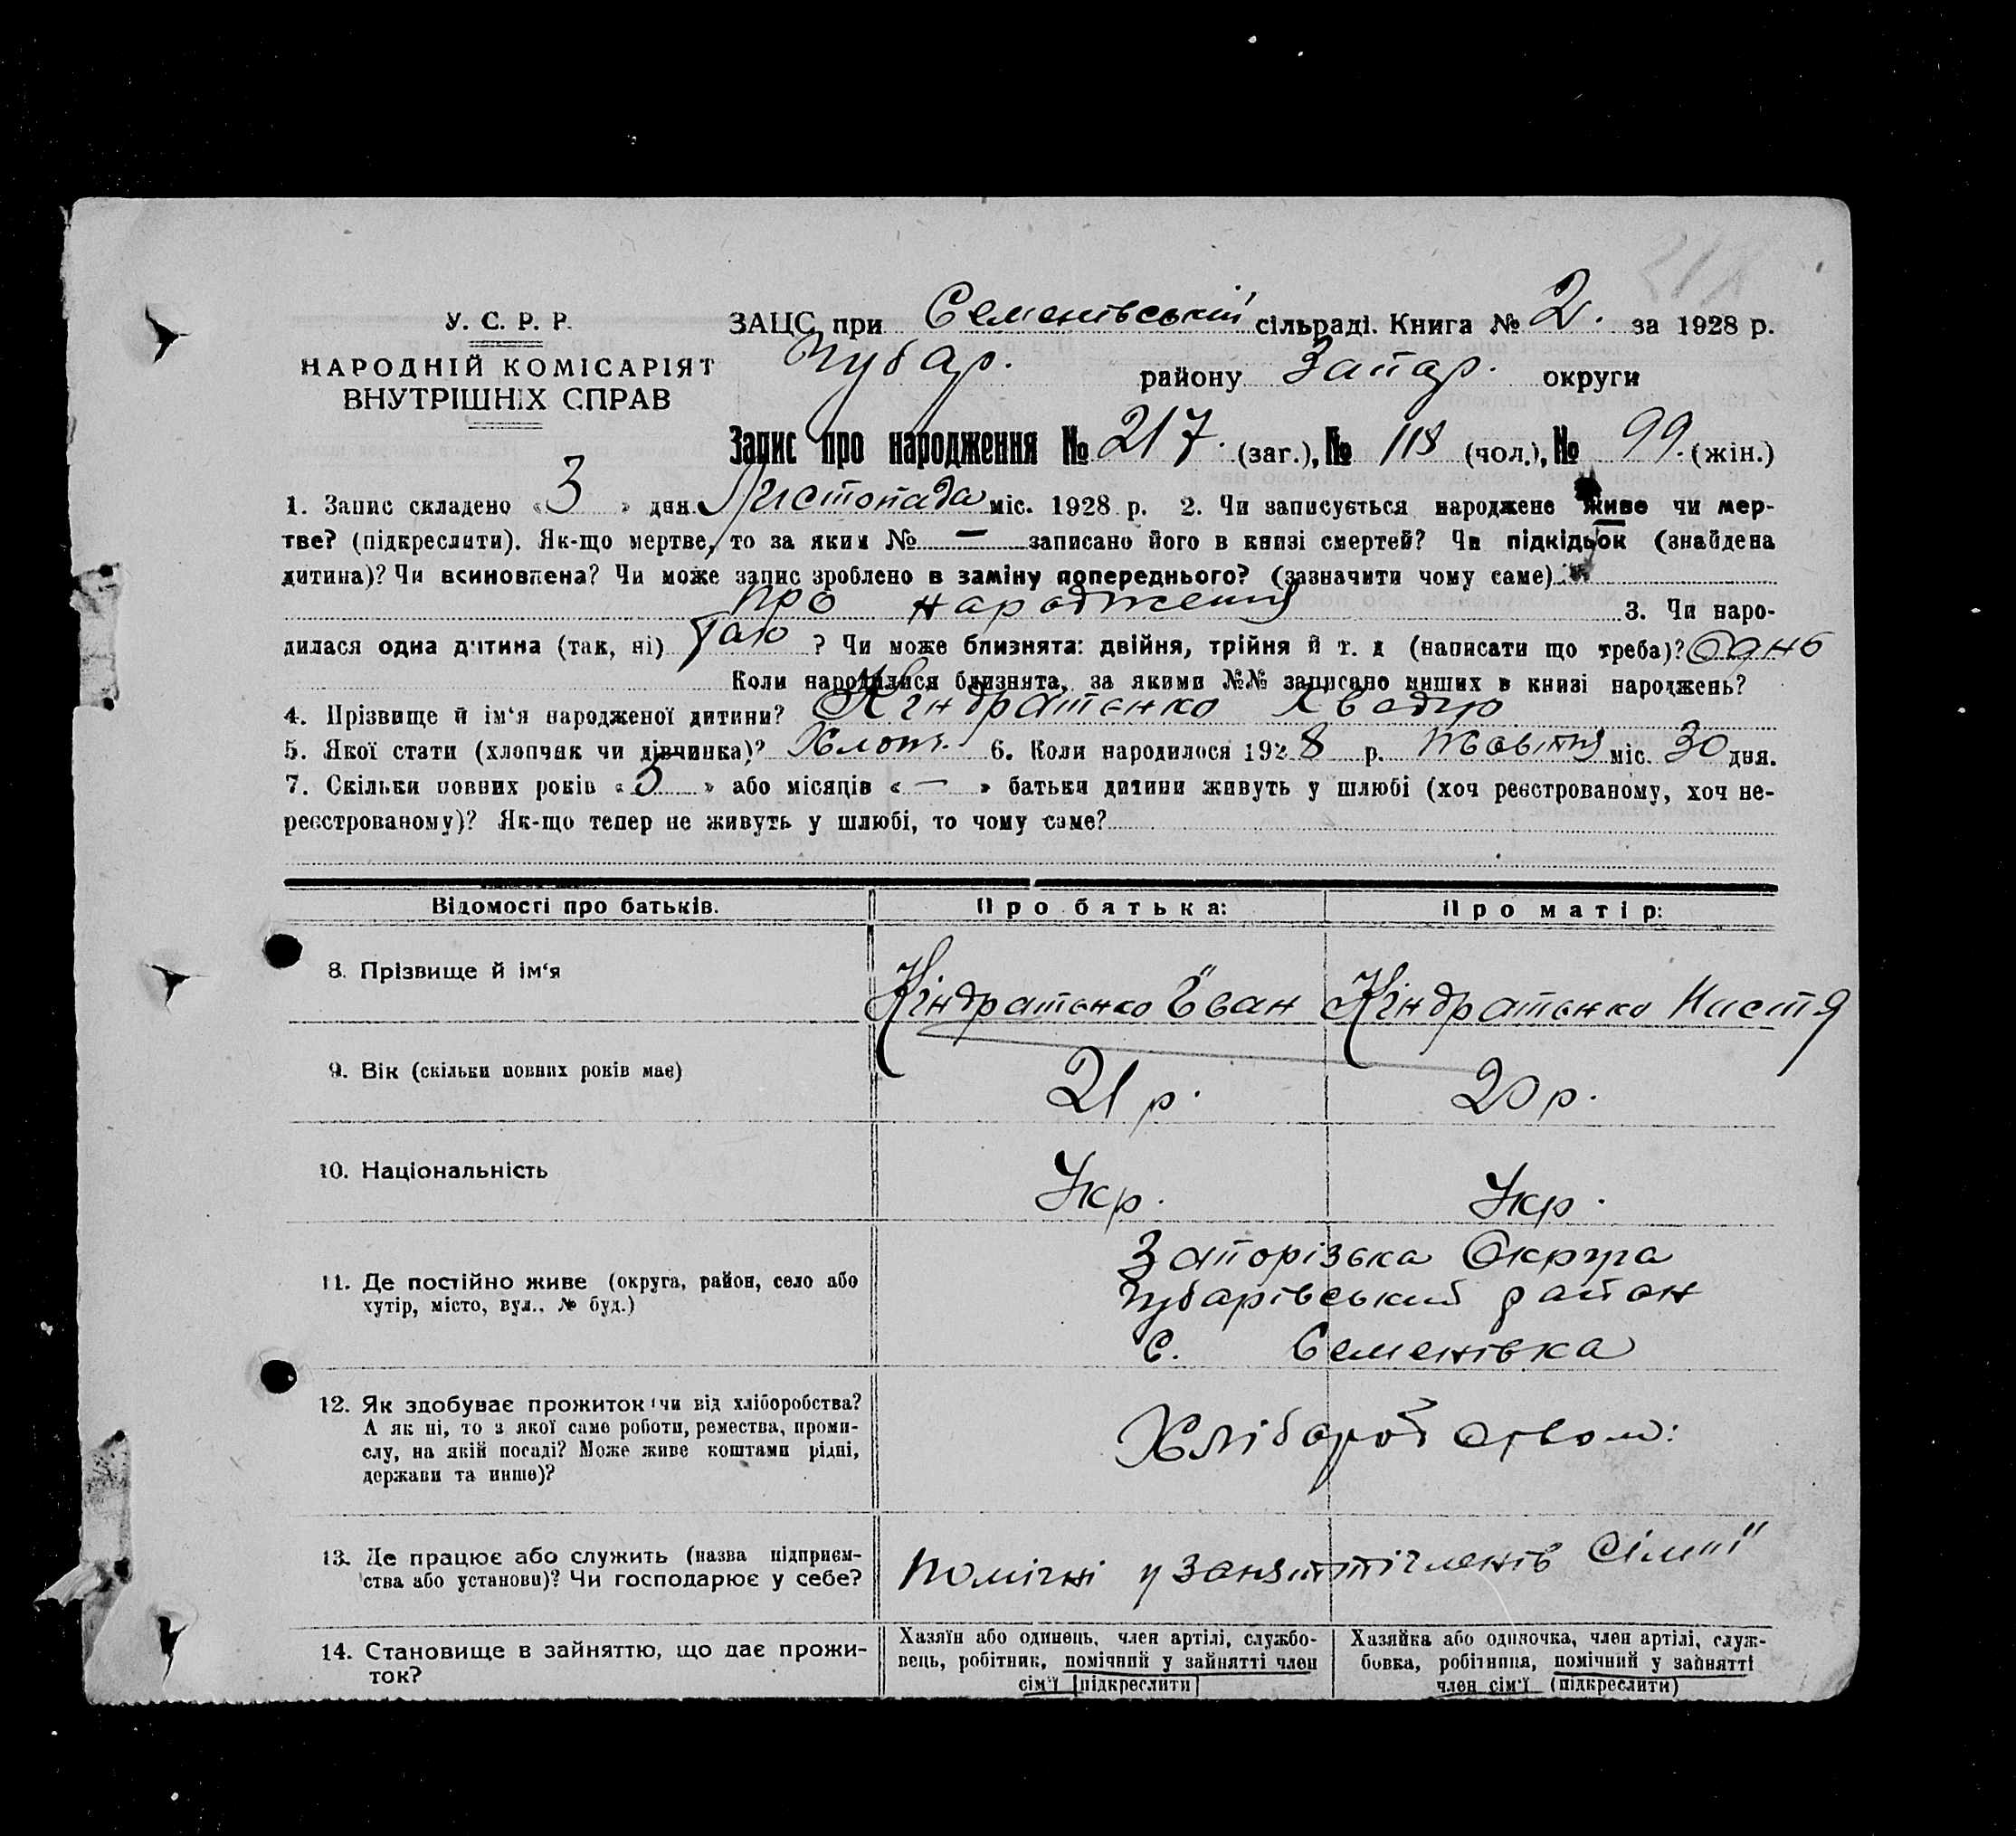 У. С. Р. Р.
НАРОДНІЙ КОМІСАРІЯТ
ВНУТРІШНІХ СПРАВ
ЗАЦС при Семенівській сільраді. Книга № 2. за 1928 р.
Чубар. району Запор. округи
Запис про народження № 217. (заг.), № 118 (чол.), № 99. (жін.)
1. Запис складено «3» дня Листопада міс. 1928 р. 2. Чи записується народжене живе чи мер-
тве? (підкреслити). Як-що мертве, то за яким № — записано його в книзі смертей? Чи підкідьок (знайдена
дитина)? Чи всиновлена? Чи може запис зроблено в заміну попереднього? (зазначити чому саме)
про народження 3. Чи наро-
дилася одна дитина (так, ні) ? Чи може близнята: двійня, трійня й т. д (написати що треба)? Одно
Коли народилися близнята, за якими №№ записано инших в книзі народжень?
4. Прізвище й ім‘я народженої дитини? Кіндратенко
5. Якої стати (хлопчик чи дівчинка)? Хлоп. 6. Коли народилося 1928 р. Жовтня міс. 30 дня.
7. Скільки повних років «3» або місяців «—» батьки дитини живуть у шлюбі (хоч реєстрованому, хоч не-
реєстрованому)? Як-що тепер не живуть у шлюбі, то чому саме?
Відомості про батьків. Про батька: Про матір:
8. Прізвище й ім‘я Кіндратенко Іван Кіндратенко Настя
9. Вік (скільки повних років має) 21 р. 20 р.
10. Національність Укр. Укр.
11. Де постійно живе (округа, район, село або
хутір, місто, вул., № буд.)
Запорізька Округа
Чубарівський район
с. Семенівка
12. Як здобуває прожиток (чи від хліборобства?
А як ні, то з якої саме роботи, ремества, проми-
слу, на якій посаді? Може живе коштами рідні,
держави та инше)?
Хліборобством:
13. Де працює або служить (назва підприєм-
ства або установи)? Чи господарює у себе?
Помічні у занятті членів Сімьї
14. Становище в зайняттю, що дає прожи-
ток?
Хазяїн або одинець, член артілі, службо-
вець, робітник, помічний у зайнятті член
сім‘ї [підкреслити]
Хазяйка або одиночка, член артілі, служ-
бовка, робітниця, помічний у зайнятті
член сім‘ї (підкреслити)